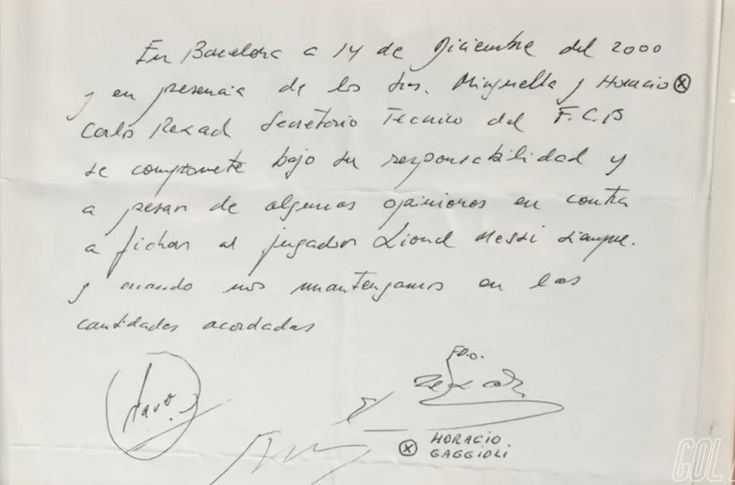 En Barcelona a 14 de Diciembre del 2000
y en presencia de los Srs. Minguella y Horacio ⓧ
Carlos Rexach Secretario Tecnico del F.C.B
se compromete bajo su responsabilidad y
a pesar de algunas opiniones en contra
a fichar al jugador Lionel Messi siempre.
y cuando nos mantengamos en las
cantidades acordadas
FDO.
ⓧ HORACIO
GAGGIOLI
GOL